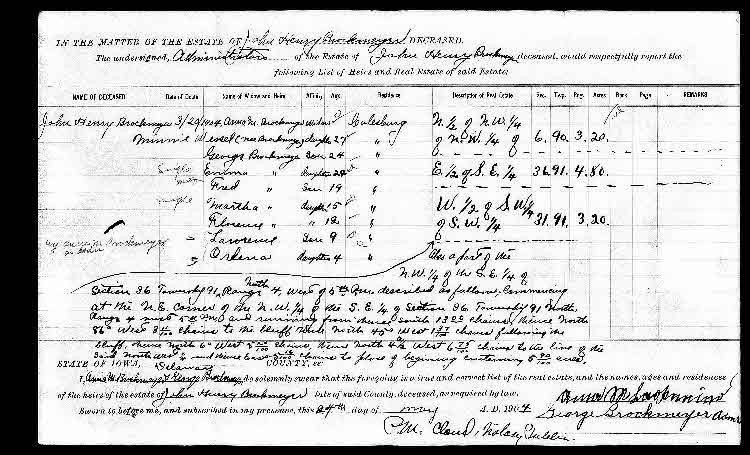 IN THE MATTER OF THE ESTATE OF John Henry Brockmeyer DECEASED.
The undersigned, Administrators of the Estate of John Henry Brockmeyer deceased, would respectfully report the
following List of Heirs and Real Estate of said Estate:
NAME OF DECEASED Date of Death Name of Widow and Heirs Affinity Age Residence Description of Real Estate Sec. Twp. Rng. Acres Book Page REMARKS
John Henry Brockmeyer 3/29/1904 Anna M. Brockmeyer Widow Colesburg N. 1/2 of N.W. 1/4
Minnie Wessel (nee Brockmeyer) daughter 27 " of N.W. 1/4 of 6. 90. 3. 20.
George Brockmeyer Son 24 "
Single Emma " daughter " E. 1/2 of S.E. 1/4 36 91. 4. 80.
man Fred " Son 19 "
single Martha " daughter 15 " W. 1/2 of S.W. 1/4
Florence " " 12 " of S.W. 1/4 31. 91. 3. 20
Lawrence " Son 9 " of
Ordena " daughter 4 " Also a part of the
N.W. 1/4 of the S.E. 1/4 of
Section 36 Township 91, North Range 4, West of 5th P.M. described as follows, Commencing
at the N.E. corner of the N.W. 1/4 of the S.E. 1/4 of Section 36, Township 91 North,
Range 4 west 5th P.M. and running from thence South chains, thence North
86° West chains to the bluff, thence North 45° West chains following the
bluff, thence North 6° West chains, thence North West chains to the line of the
and thence East chains to place of beginning containing acres.
STATE OF IOWA, Delaware COUNTY, ss:
I, Anna M. Brockmeyer & George Brockmeyer do solemnly swear that the foregoing is a true and correct list of the real estate, and the names, ages and residences
of the heirs of the estate of John Henry Brockmeyer late of said County, deceased, as required by law.
Anna M Brockmeyer
Sworn to before me, and subscribed in my presence, this 24th day of May A. D. 1904
George Brockmeyer Admr
P.M. Cloud, Notary Public.